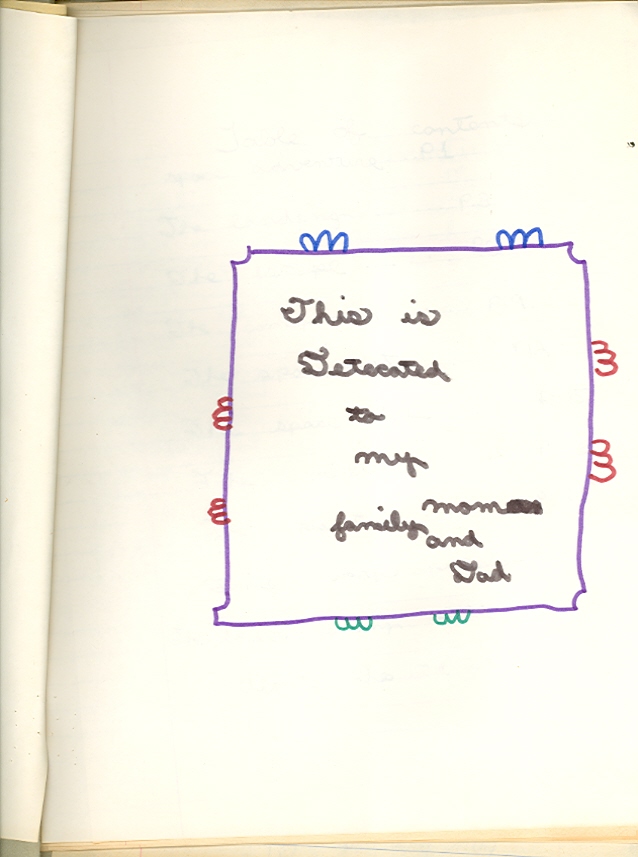 This is
Detecated
to
my
family mom
and
Dad